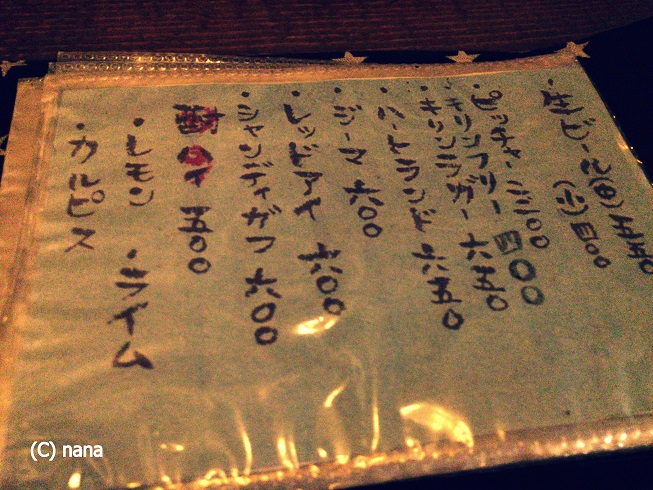 ・生ビール(中)
(小)四〇〇
・ピッチャー
・キリンフリー 四〇〇
・キリンラガー 六五〇
・ハートランド 六五〇
・ジーマ 六〇〇
・レッドアイ 六〇〇
・シャンディガフ 六〇〇
酎ハイ 五〇〇
・レモン ・ライム
・カルピス
(C) nana